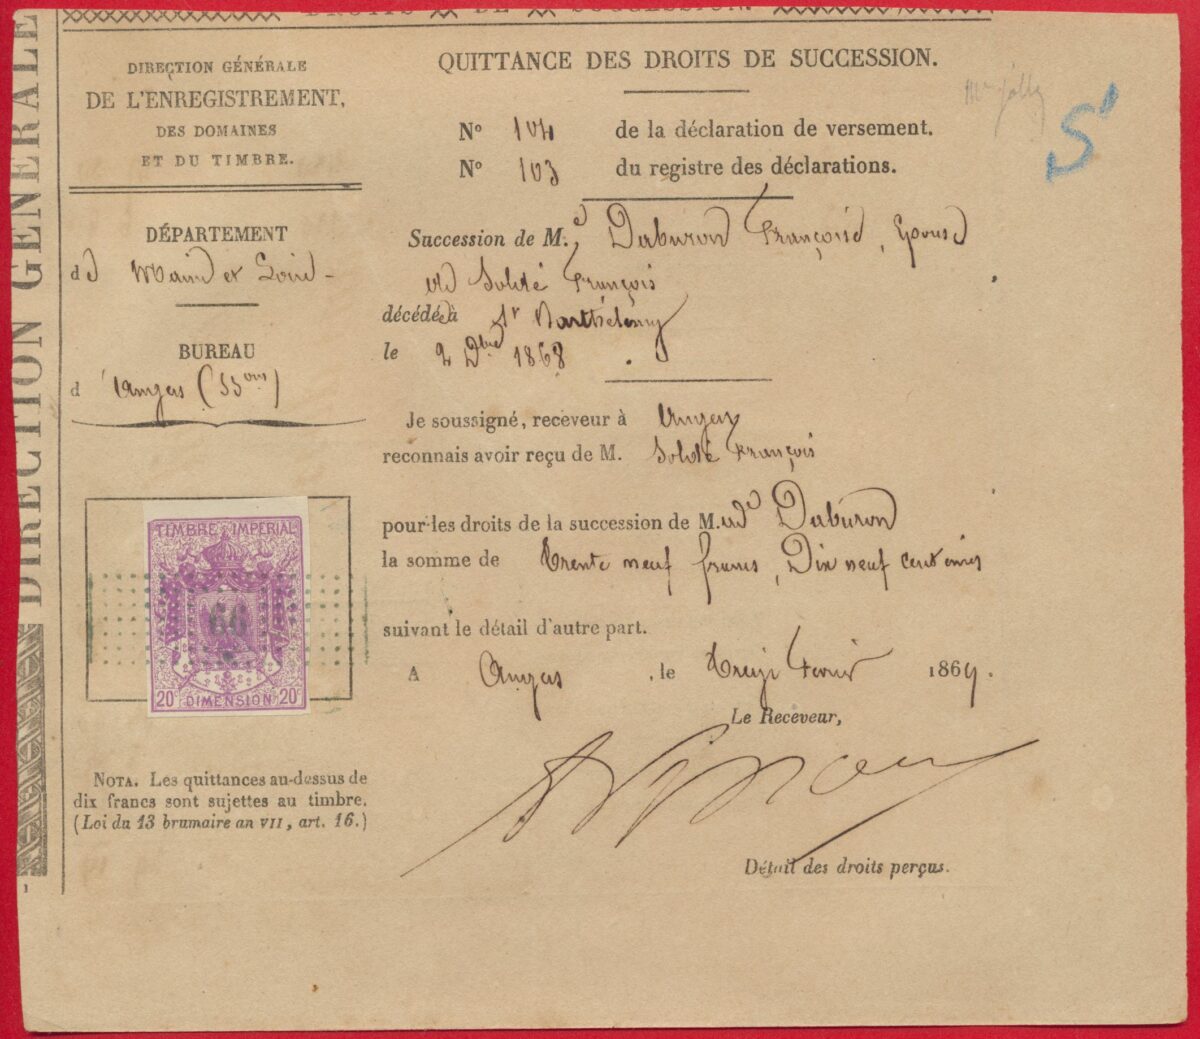 DROITS DE SUCCESSION.
DIRECTION GÉNÉRALE
DIRECTION GÉNÉRALE
DE L'ENREGISTREMENT,
DES DOMAINES
ET DU TIMBRE.
DÉPARTEMENT
de Maine et Loire
BUREAU
d'Angers (55ons)
TIMBRE IMPERIAL
66
20c DIMENSION 20c
NOTA. Les quittances au-dessus de
dix francs sont sujettes au timbre.
(Loi du 13 brumaire an VII, art. 16.)
1
QUITTANCE DES DROITS DE SUCCESSION.
No 104 de la déclaration de versement.
No 103 du registre des déclarations.
S'
Succession de M.e Daburon Françoise, Epouse
de Soldé François
décédée à St Barthélemy
le 2 Dbre 1868
Je soussigné, receveur à Angers
reconnais avoir reçu de M. Soldé François
pour les droits de la succession de M. Daburon
la somme de Trente neuf francs, Dix neuf centimes
suivant le détail d'autre part.
A Angers, le treize Février 1869.
Le Receveur,
Détail des droits perçus.